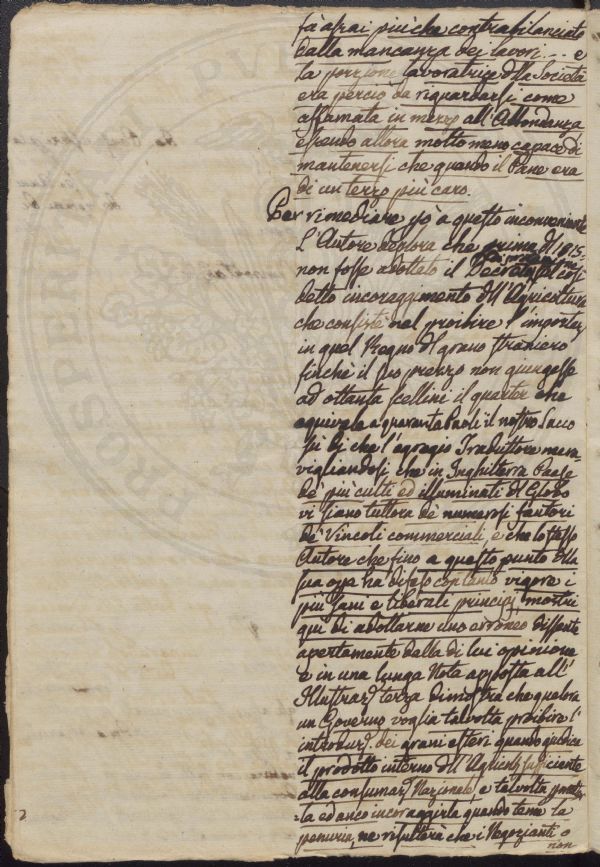 fà assai più che contrabilanciato
dalla mancanza dei lavori... e
la porzione lavoratrice della Società
era perciò da riguardarsi come
affamata in mezzo all'Abbondanza
essendo allora molto meno capace di
mantenersi che quando il Pane era
di un terzo più caro.
Per rimediare a questo inconveniente
L'Autore deplora che prima del 1815
non fosse adottato il Decreto così
detto incoraggimento dell'Agricoltura
che consiste nel proibire l'importaz
in quel Regno del grano straniero
finchè il suo prezzo non giungesse
ad ottanta scellini il quarter che
equivale a quaranta Paoli il nostro Sacco
Su di che l'egregio Traduttore mera-
vigliandosi che in Inghilterra Paese
de' più culti ed illuminati del Globo
vi siano tuttora de' numerosi fautori
de' Vincoli commerciali, e che lo stesso
Autore che fino a questo punto della
sua opa ha difeso con tanto vigore i
più sani e liberali principj mostri
qui di adottarne uno erroneo dissente
apertamente dalla di lui opinione
e in una lunga Nota apposta all'
Illustraz terza dimostra che qualora
un Governo voglia talvolta proibire l'
introduz. dei grani esteri quando giudica
il prodotto interno dell'Agricolt sufficiente
alla consumaz Nazionale, e talvolta permet-
ta ed anco incoraggirla quando teme la
penuria, ne risulterà che i Negozianti o
non
2